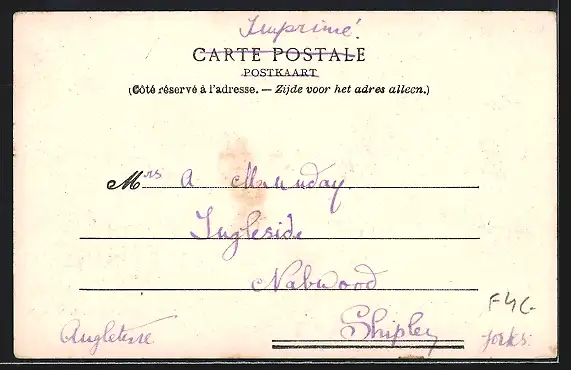 Imprimé.
CARTE POSTALE
POSTKAART
(Côté réservé à l'adresse. — Zijde voor het adres alleen.)
Mrs A Munday.
Ingleside
Nabwood
Shipley
Angleterre Yorks: